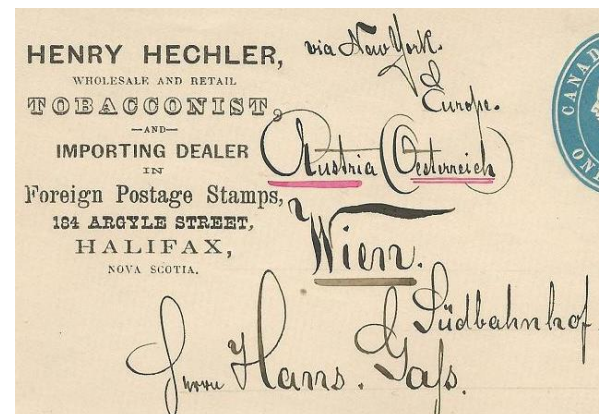 HENRY HECHLER,
WHOLESALE AND RETAIL
TOBACCONIST,
—AND—
IMPORTING DEALER
IN
Foreign Postage Stamps,
184 ARGYLE STREET,
HALIFAX,
NOVA SCOTIA.
via New York.
& Europe.
Austria (Oesterreich)
Wien.
Südbahnhof
Herrn Hans. Gaſs.
CANAD
ON